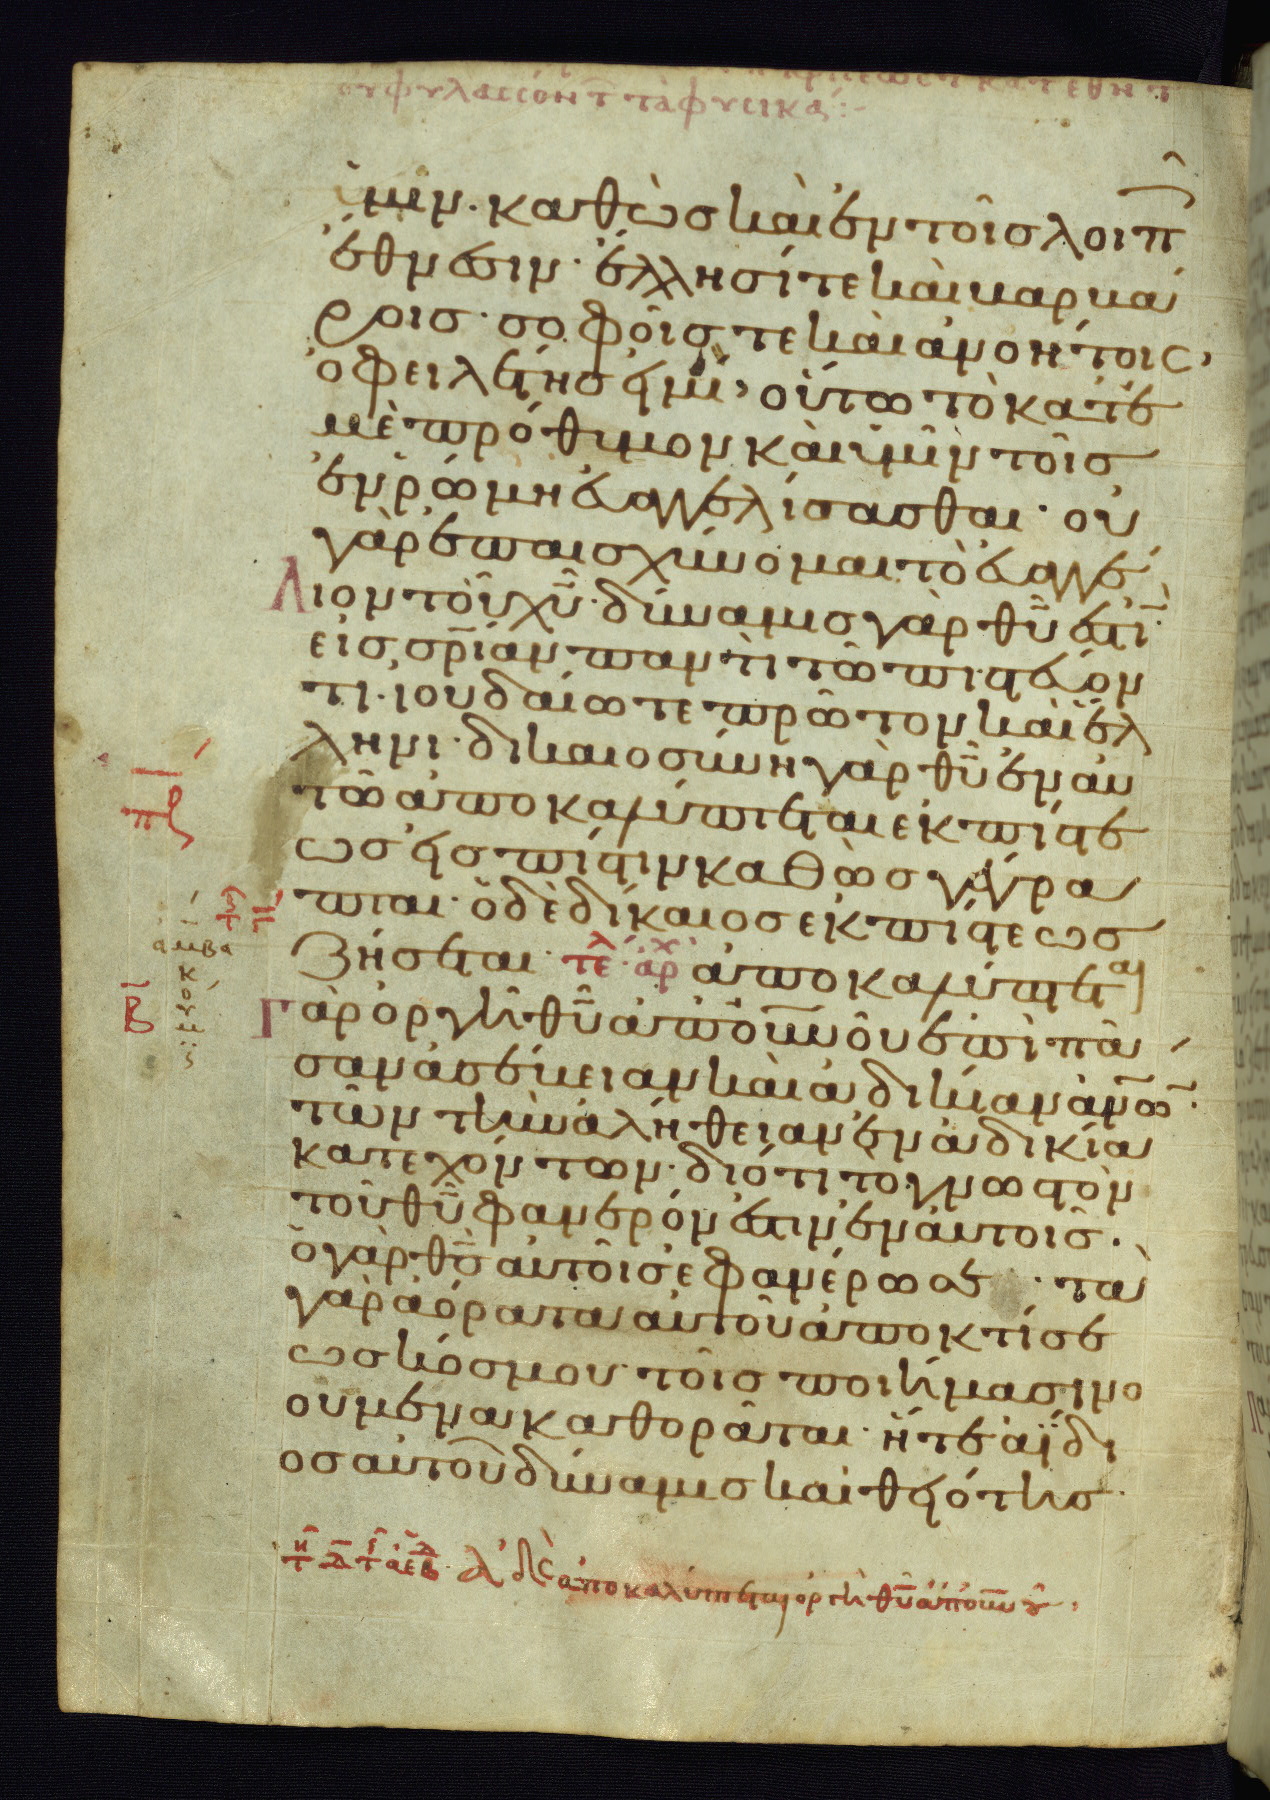 οὐ φυλασσόντ τὰ φυσικά:-
ὑμῖν· καθὼσ καὶ ἐν τοῖσ λοιπ
ἔθνεσιν· ἕλλησί τε καὶ βαρβά
ροισ· σοφοῖσ τε καὶ ἀνοήτοις,
ὀφειλέτησ εἰμί, οὕτω τὸ κατ ἐ
μὲ πρόθυμον καὶ ὑμῖν τοῖσ
ἐν ῥώμη εὐαγγελίσασθαι· οὐ
γὰρ ἐπαισχύνομαι τὸ εὐαγγέ
λιον τοῦ χῦ· δύναμισ γὰρ θῦ ἐστι
εἰσ σρίαν παντὶ τῶ πιστεύον
τι· ἰουδαίω τε πρῶτον καὶ ἕλ
ληνι· δικαιοσύνη γὰρ θῦ ἐν αυ
τῶ ἀποκαλύπτεται εκ πίστε
ωσ εἰσ πίστιν καθὼσ γέγρα
πται· ὁ δὲ δίκαιοσ εκ πίστεωσ
ζήσεται· τε· ἀρχ ἀποκαλύπτεται
Γὰρ ὀργὴ θῦ ἀπ οὐνοῦ ἐπὶ πᾶ
σαν ἀσέβειαν καὶ ἀδικίαν ἀνων·
τῶν τὴν ἀλήθειαν ἐν ἀδικία
κατεχόντων· διότι το γνωστὸν
τοῦ θῦ φανερόν ἐστιν ἐν αυτοῖσ·
ὁ γὰρ θσ αὐτοῖσ ἐφανέρωσε· τὰ
γὰρ ἀόρατα αὐτοῦ ἀπο κτίσε
ωσ κόσμου· τοῖσ ποιήμασι νο
ουμενα καθορᾶται· ἥ τε ἀΐδι
οσ αὐτοῦ δύναμισ καὶ θειότησ·
ἀποκαλύπτεται ὀργὴ θῦ ἀπ οὐνοῦ·